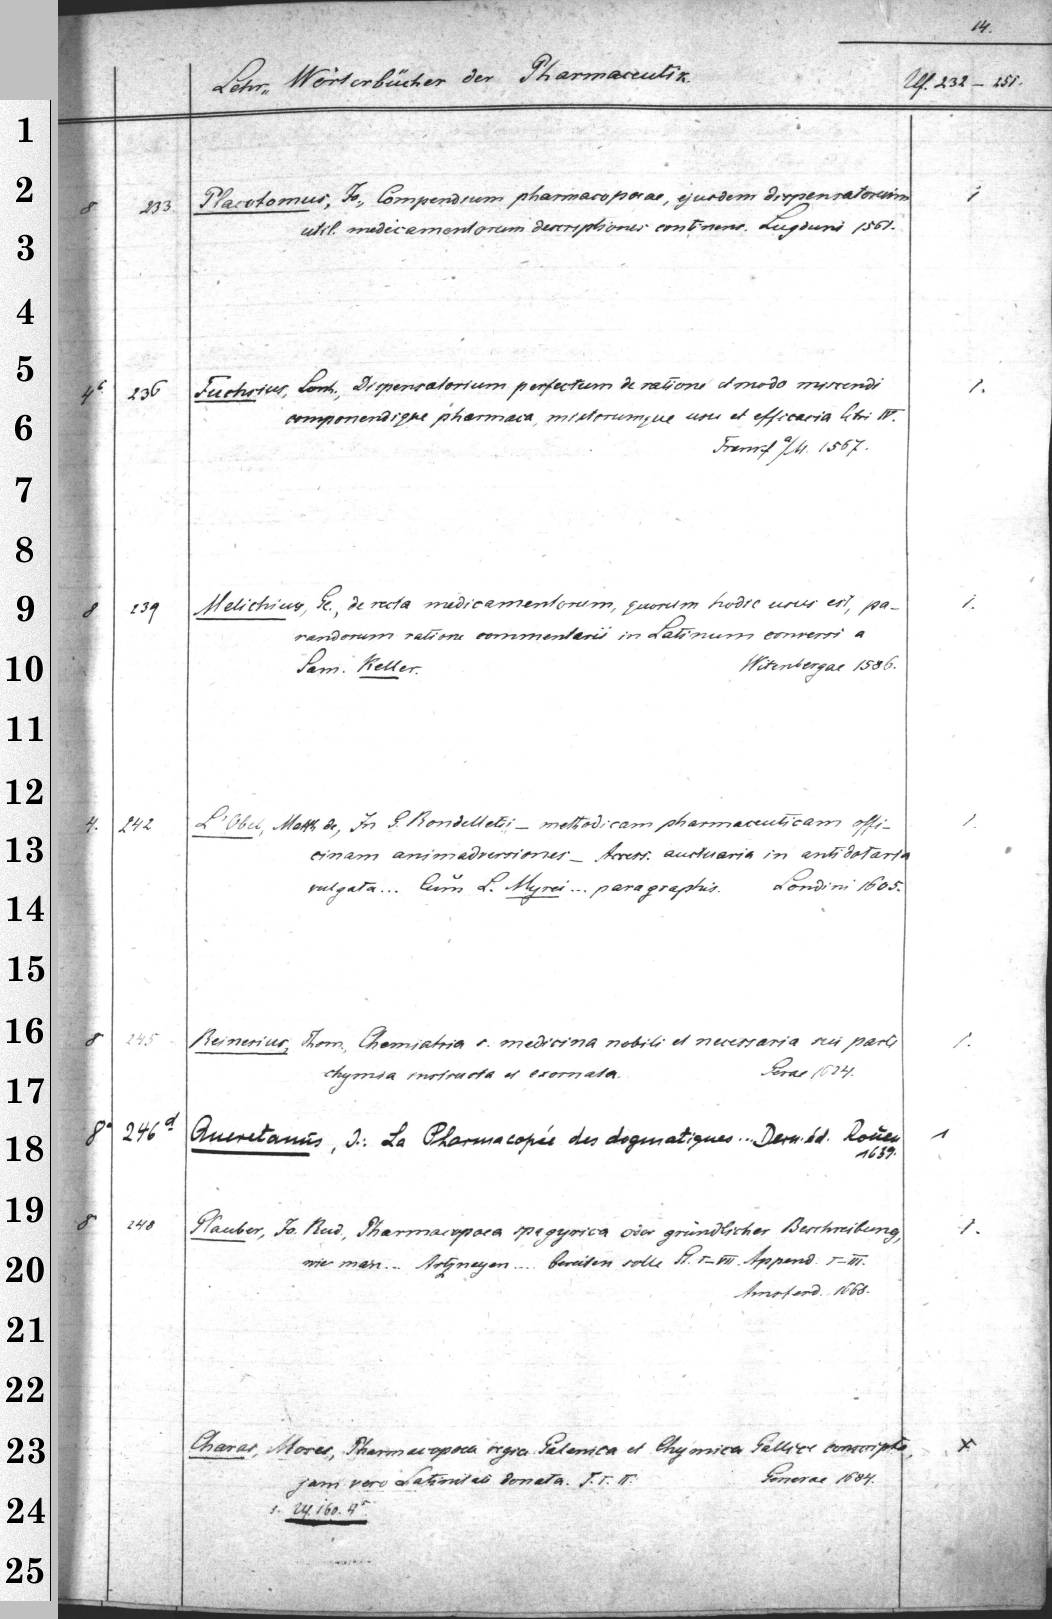 14.
Lehr„ Wörterbücher der Pharmaceutik.
Uf. 232 – 251.
1
2
8 233 Placotomus, Jo., Compendium pharmacopoeae, ejusdem dispensatorium 1
3 util. medicamentorum descriptiones continens. Lugduni 1561.
4
5 4° 236 Fuchsius, Leonh., Dispensatorium perfectum de ratione et modo miscendi 1.
6 componendique pharmaca, mixtorumque usu et efficacia libri IV.
Francf a/M. 1567.
7
8
9 8 239 Melichius, Ge., de recta medicamentorum, quorum hodie usus est, pa-
randorum ratione commentarii in Latinum conversi a 1.
10 Sam. Keller. Witenbergae 1586.
11
12
4. 242 L'Obel, Matth. de, In G. Rondelletii – methodicam pharmaceuticam offi- 1.
13 cinam animadversiones – Access. auctuaria in antidotaria
14 vulgata... Cum L. Myrei ... paragraphis. Londini 1605.
15
16 8 245 Reinesius, Thom., Chemiatria s. medicina nobili et necessaria sui parte 1.
17 chymia instructa et exornata. Gerae 1624.
18 8° 246d Quercetanus, J.: La Pharmacopée des dogmatiques ... Dern. éd. Roüen 1
1639.
19 8 248 Glauber, Jo. Rud., Pharmacopoea spagyrica oder gründlicher Beschreibung, 1.
20 wie man ... Artzneyen .... bereiten solle Pt. I–VII. Append. I–III.
Amsterd. 1668.
21
22
23 Charas, Moses, Pharmacopoea regia Galenica et Chymica Gallice conscripta, x
jam vero Latinitati donata. T. I. II. Genevae 1684.
24 s. Uf. 160. 4°.
25